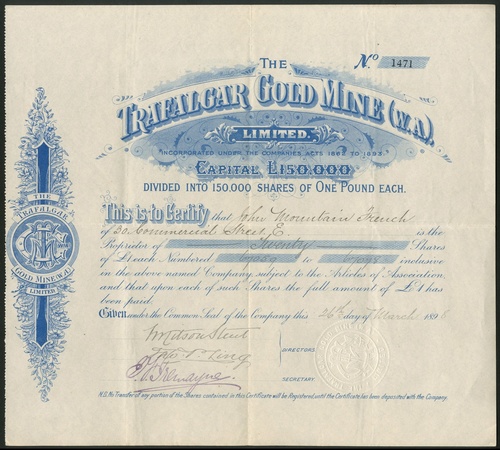 THE
Nº 1471
TRAFALGAR GOLD MINE (W.A.)
LIMITED.
INCORPORATED UNDER THE COMPANIES ACTS 1862 TO 1893.
CAPITAL £150.000
DIVIDED INTO 150.000 SHARES OF ONE POUND EACH.
This is to Certify that John Mountain French
of 30 Commercial Street, E. is the
Proprietor of Twenty Shares
of £1 each Numbered to inclusive
in the above named Company subject to the Articles of Association,
and that upon each of such Shares the full amount of £1 has
been paid.
Given under the Common Seal of the Company this 26th day of March 189
DIRECTORS
SECRETARY
N.B. No Transfer of any portion of the Shares contained in this Certificate will be Registered until the Certificate has been deposited with the Company.
THE
TRAFALGAR
GOLD MINE (W.A.)
LIMITED